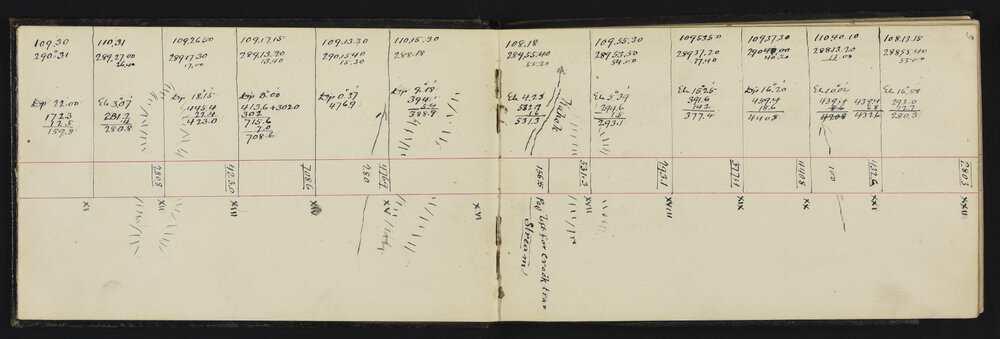 109.30
290.31
Dp 22.00
172.3
12.5
159.8
110.31
289.27.00
26.40
El 3.07
281.2
.4
280.8
109.26.50
289.17.30
17.00
Dp 18.15
445.4
22.4
423.0
109.17.15
289.13.20
13.40
Dp 8.00
413.6+302.0
302
715.6
7.0
708.6
109.13.30
290.15.40
15.30
Dp 0.37
476.9
110.15.30
288.18
Dp 9.18
394.1
5.4
388.9
108.18
289.55.40
55.20
El 4.23
532.9
1.6
531.3
Tahoe
109.55.30
289.53.50
54.00
El 5.39
294.6
1.5
293.1
109.53.50
289.37.20
El 16.25
391.6
14.2
377.4
109.37.30
290.40.00
40.20
Dp 16.20
459.4
18.6
440.8
110.40.10
288.13.20
13.00
El 10.01
439.4 439.4
6.8
420.8 432.6
108.13.15
288.55.40
55.00
El 16.58
293.0
12.7
280.3
280.8
423.0
708.6
280
476.9
156.5
531.3
293.1
377.4
440.8
100
432.6
280.3
XI
XII
XIII
XIV
XV
XVI
Peg 156 for creek trav
Stream
XVII
XVIII
XIX
XX
XXI
XXII